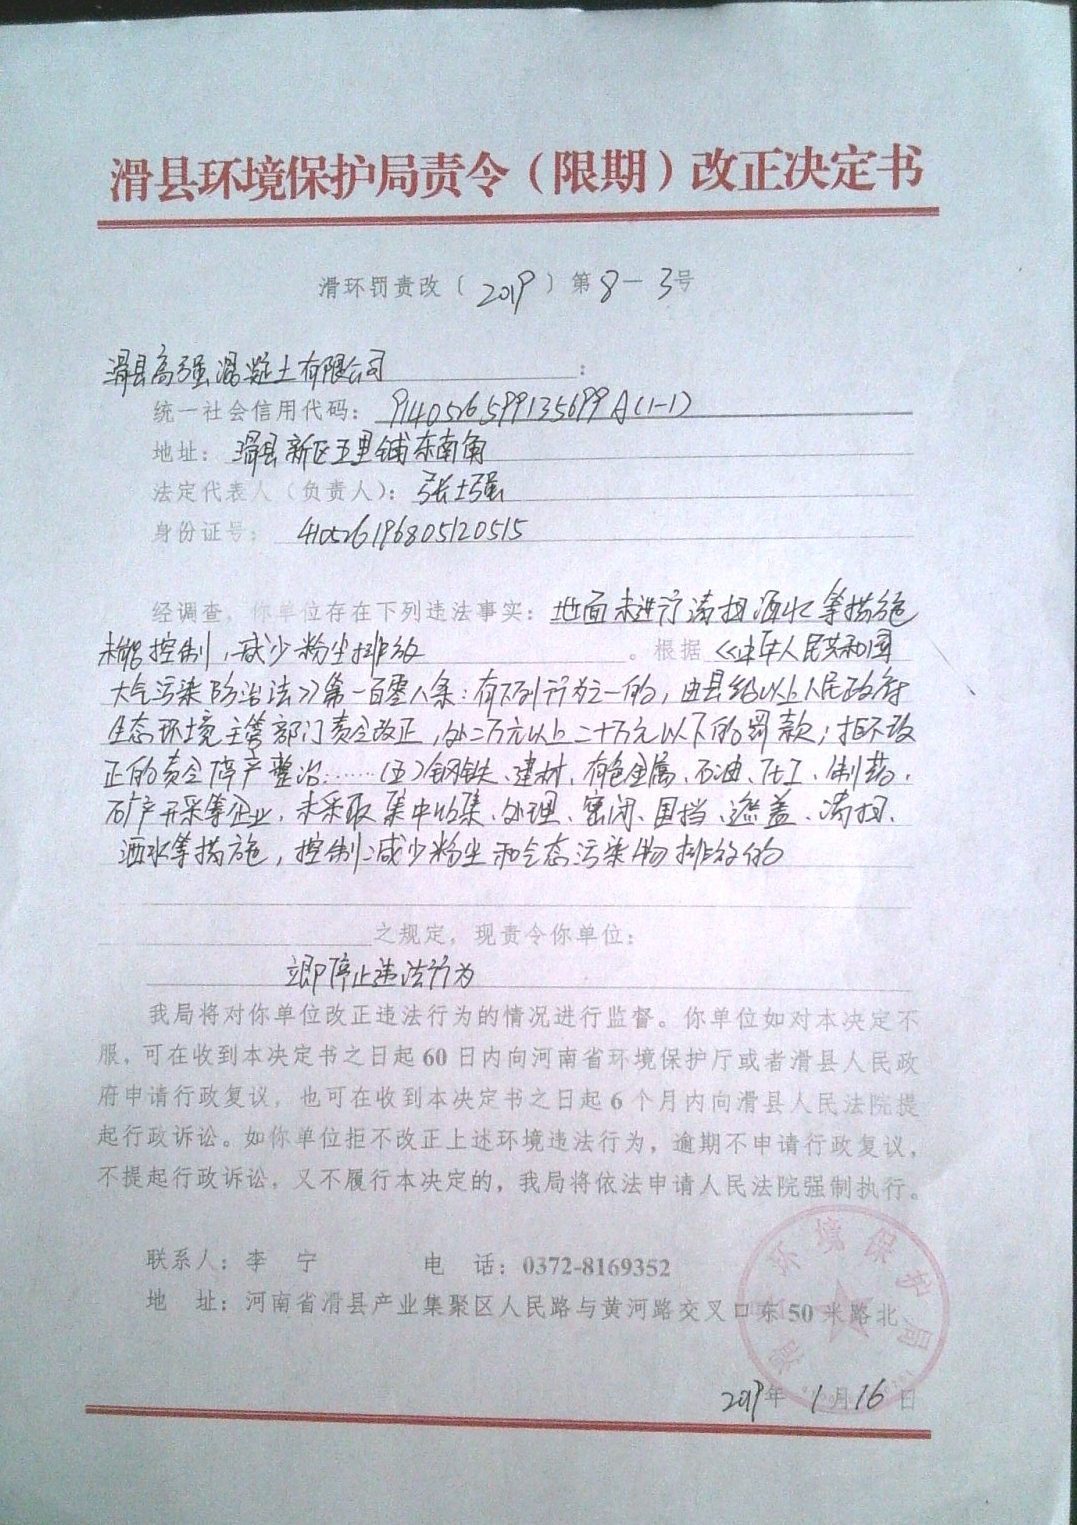 滑县环境保护局责令（限期）改正决定书
滑环罚责改〔2019〕第8-3号
滑县高强混凝土有限公司：
统一社会信用代码：91410526599135699A(1-1)
地址：滑县新区五里铺东南角
法定代表人（负责人）：张士强
身份证号：410526196805120515
经调查，你单位存在下列违法事实：地面未进行清扫洒水等措施
未能控制、减少粉尘排放。根据《中华人民共和国
大气污染防治法》第一百零八条：有下列行为之一的，由县级以上人民政府
生态环境主管部门责令改正，处二万元以上二十万元以下的罚款；拒不改
正的责令停产整治……（五）钢铁、建材、有色金属、石油、化工、制药、
矿产开采等企业，未采取集中收集、处理、密闭、围挡、遮盖、清扫、
洒水等措施，控制、减少粉尘和气态污染物排放的
之规定，现责令你单位：
立即停止违法行为
我局将对你单位改正违法行为的情况进行监督。你单位如对本决定不
服，可在收到本决定书之日起60日内向河南省环境保护厅或者滑县人民政
府申请行政复议，也可在收到本决定书之日起6个月内向滑县人民法院提
起行政诉讼。如你单位拒不改正上述环境违法行为，逾期不申请行政复议，
不提起行政诉讼，又不履行本决定的，我局将依法申请人民法院强制执行。
联系人：李 宁 电 话：0372-8169352
地 址：河南省滑县产业集聚区人民路与黄河路交叉口东50米路北
滑县环境保护局
2019年1月16日